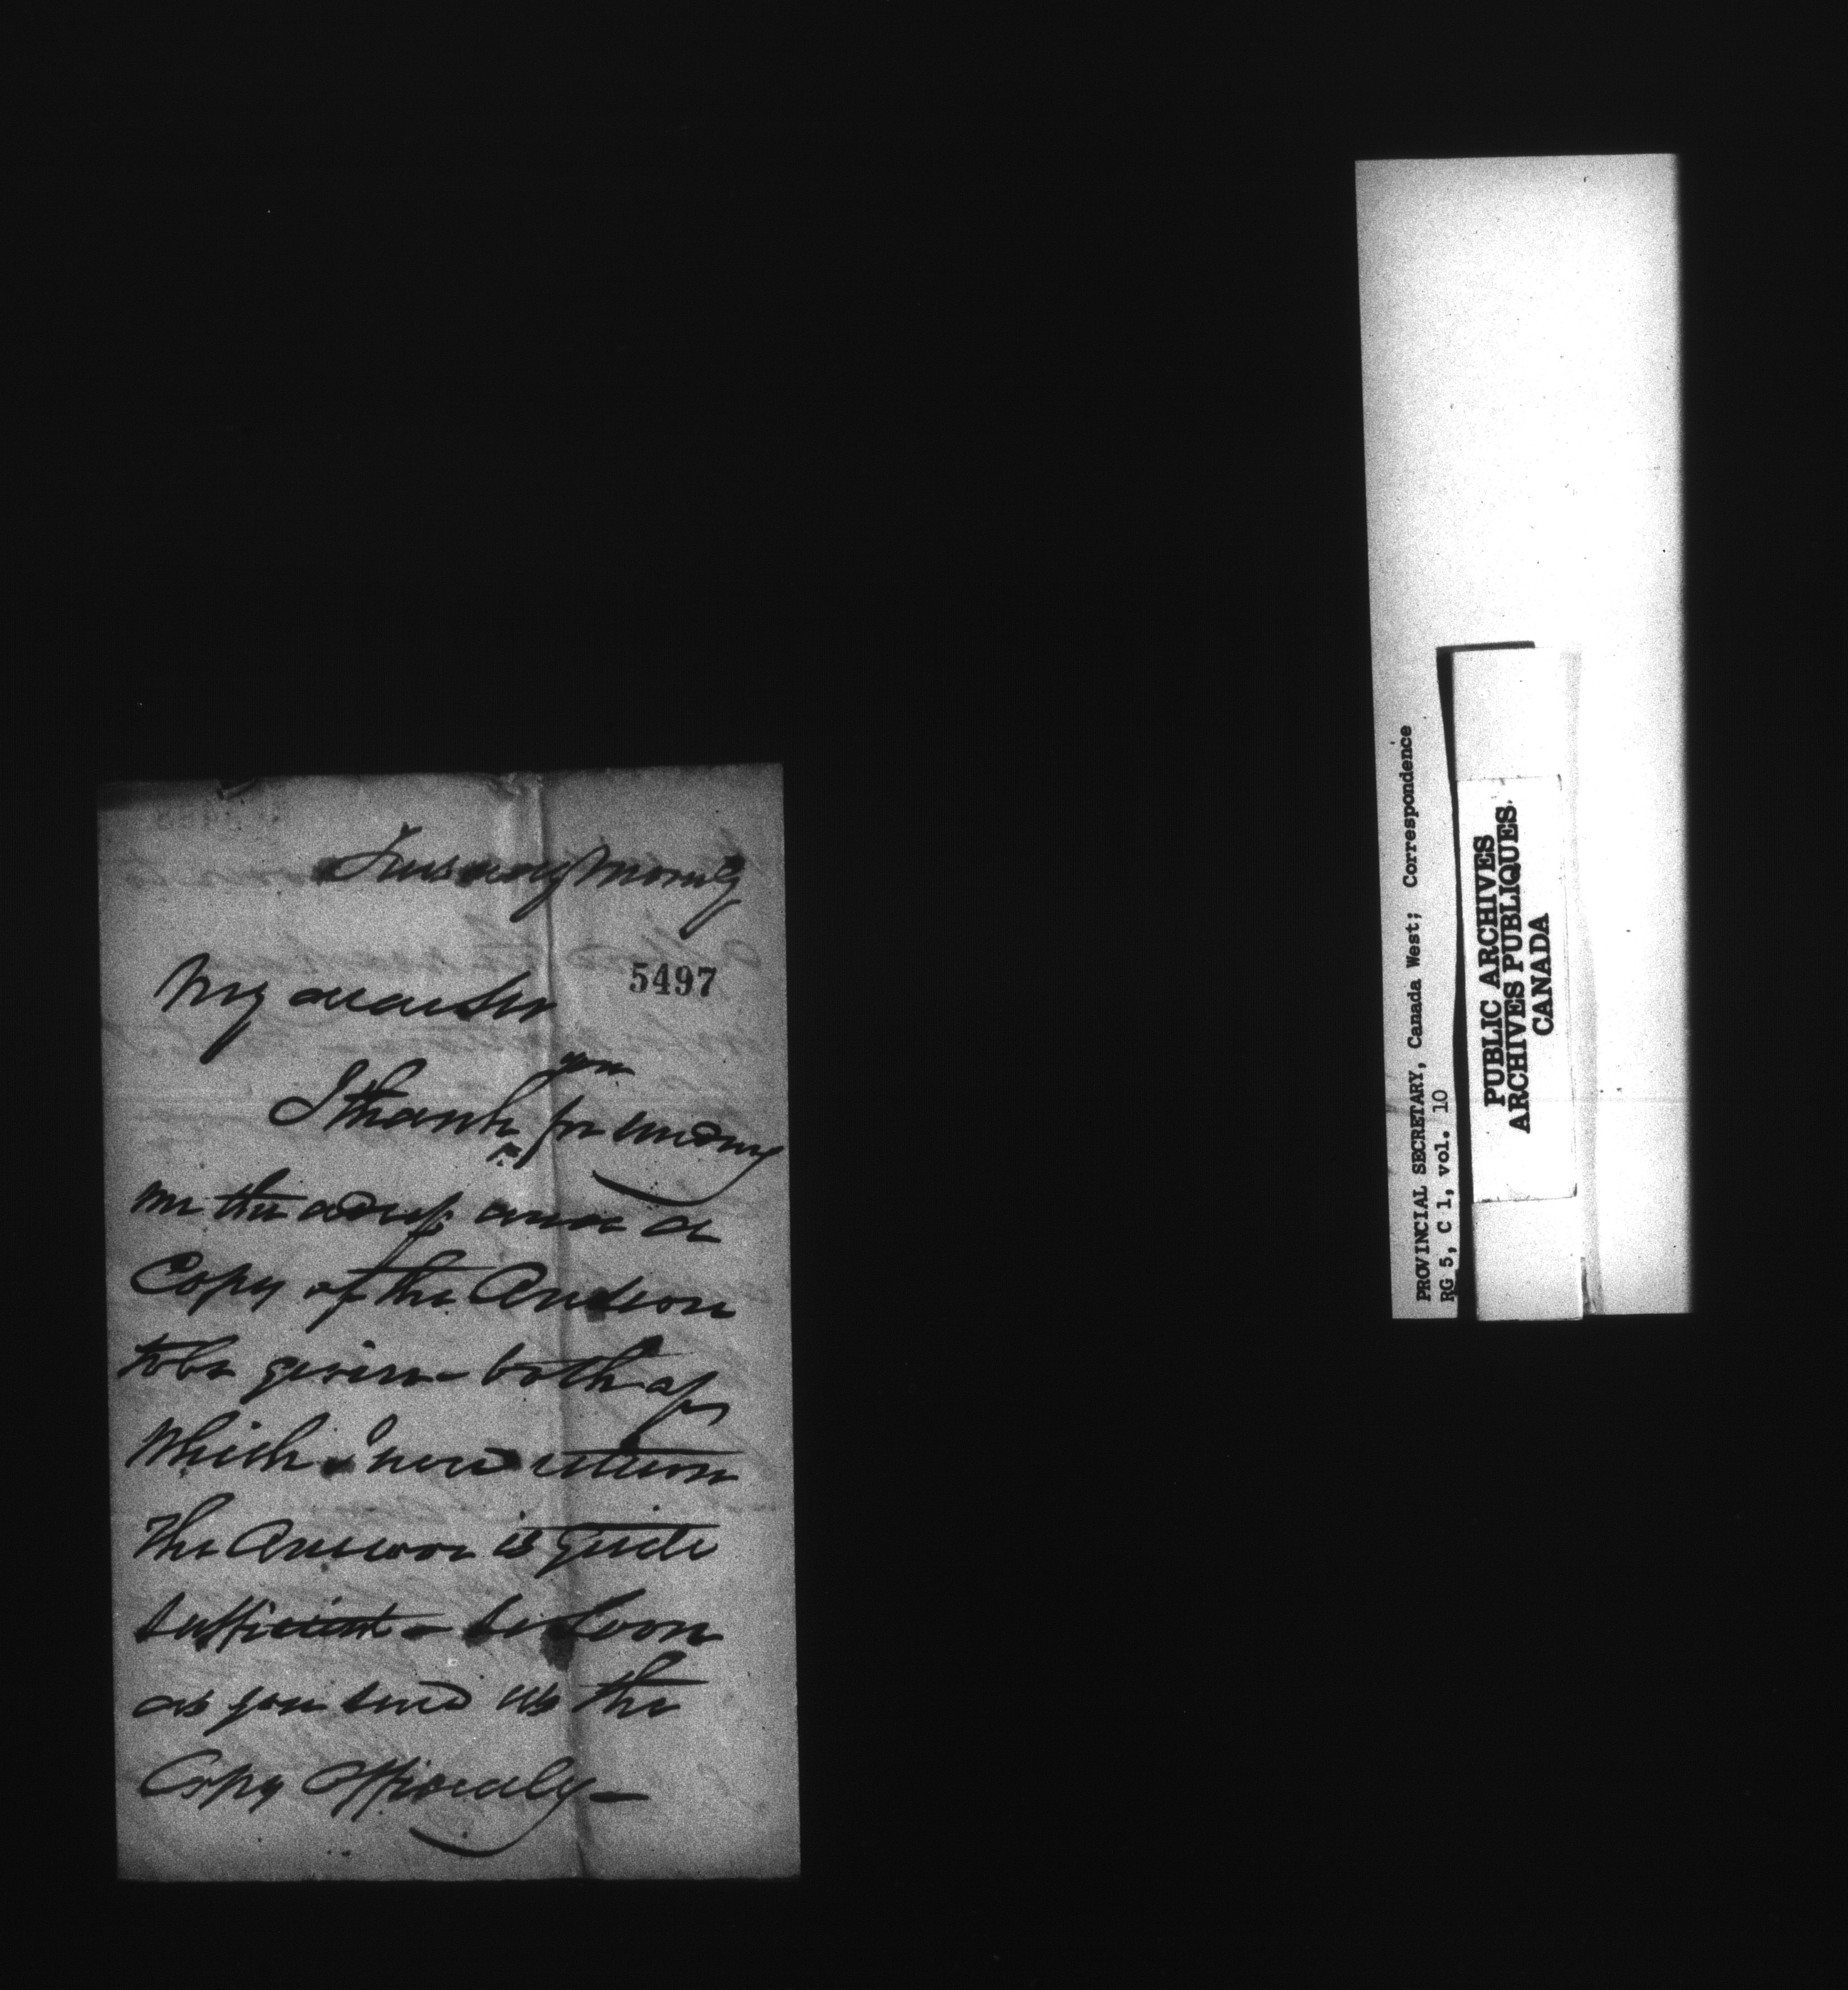 Tuesday Morng
My dear Sir
5497
I thank you for sending
me the adress and a
Copy of the Answer
to be given - both of
Which I now return
The Answer is quite
sufficient - so soon
as you send us the
Copy Officially -
PROVINCIAL SECRETARY, Canada West; Correspondence
RG 5, C 1, vol. 10
PUBLIC ARCHIVES
ARCHIVES PUBLIQUES
CANADA